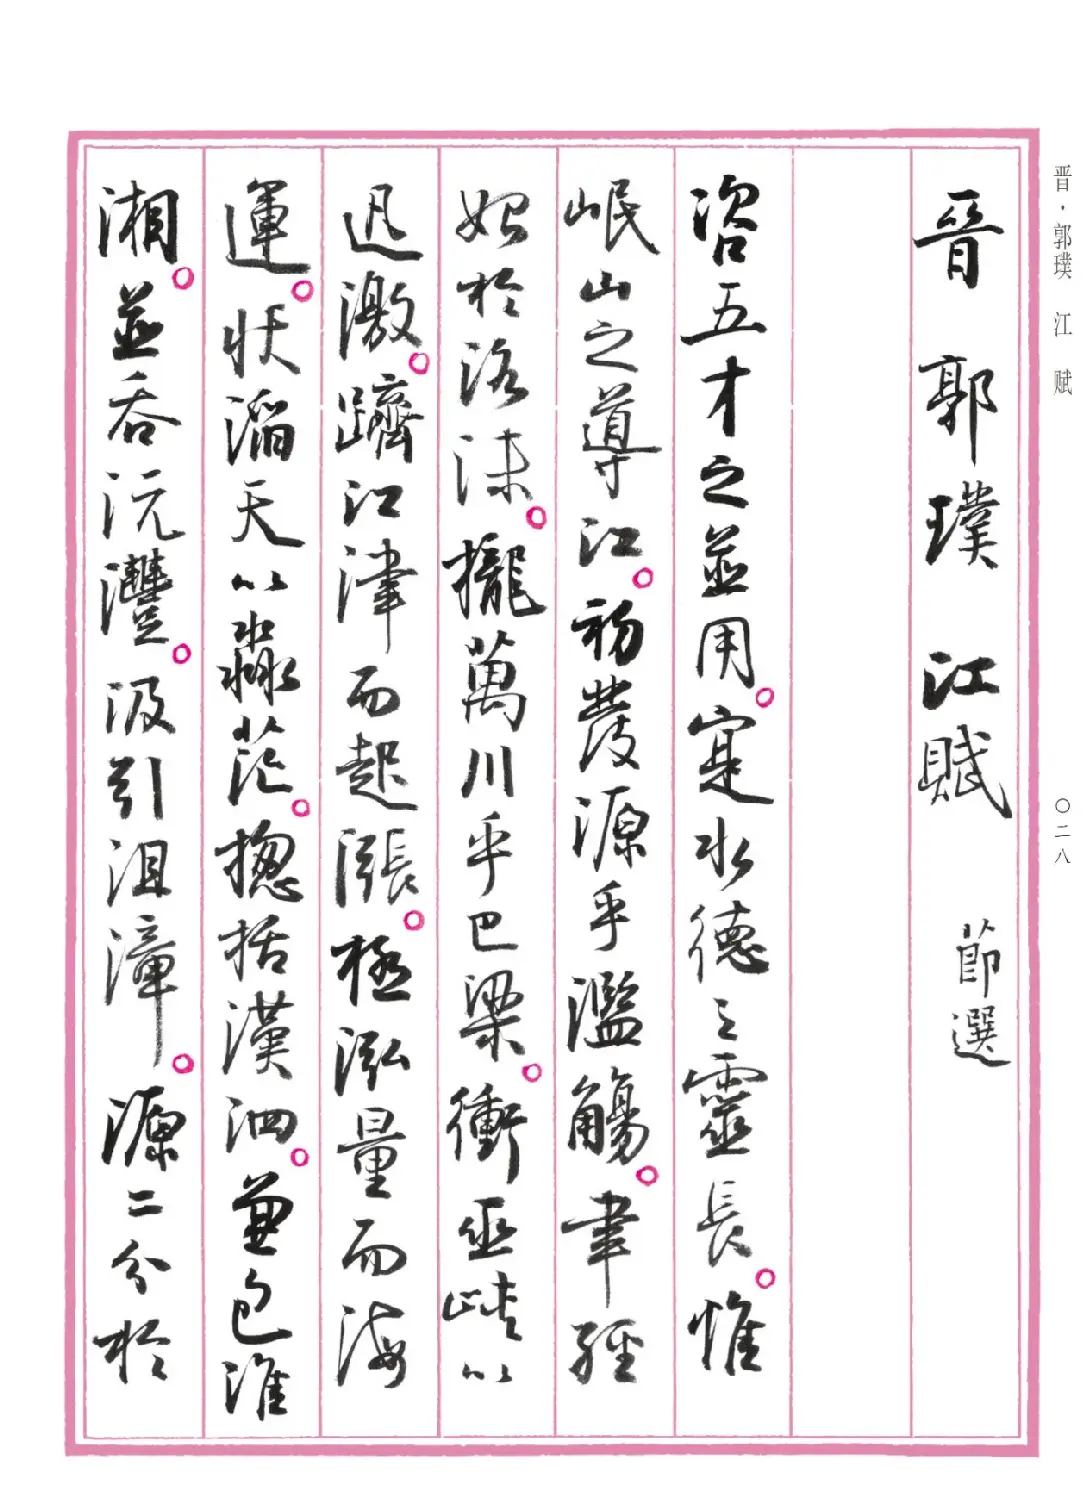 晋·郭璞 江 赋
〇二八
晉 郭璞 江賦 節選
咨五才之並用。寔水德之靈長。惟
岷山之導江。初發源乎濫觴。聿經
始於洛沬。攏萬川乎巴梁。衝巫峽以
迅激。躋江津而起漲。極泓量而海
運。狀滔天以淼茫。揔括漢泗。兼包淮
湘。並吞沅灃。汲引沮漳。源二分於